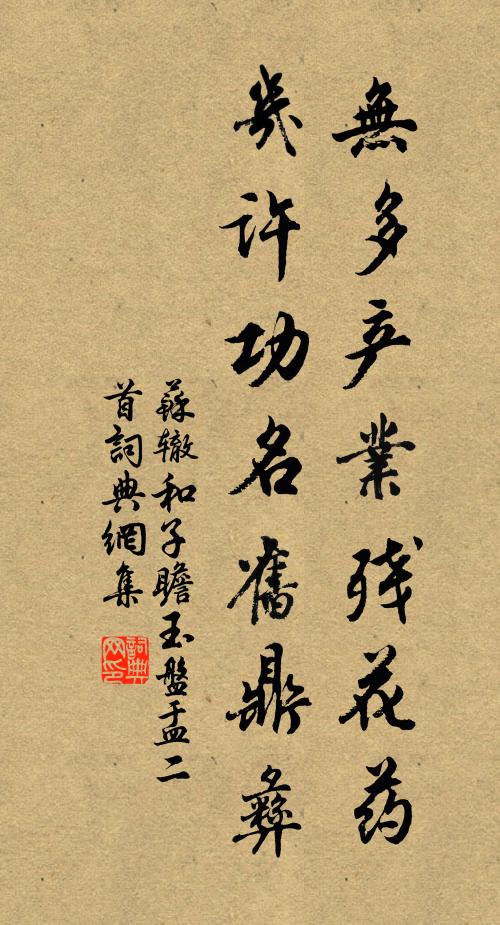 無多产業残花药
幾许功名舊鼎彝
蘇辙和子瞻玉盤盂二
首詞典網集
詞典网印